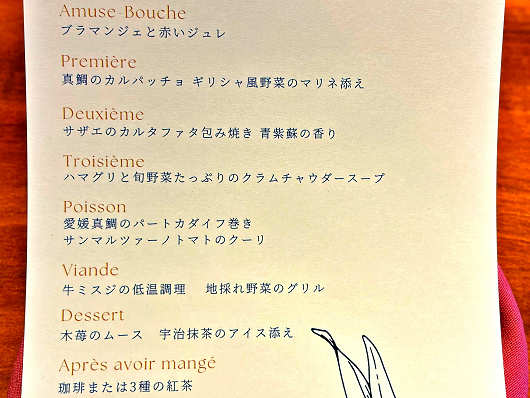 Amuse-Bouche
ブラマンジェと赤いジュレ
Première
真鯛のカルパッチョ ギリシャ風野菜のマリネ添え
Deuxième
サザエのカルタファタ包み焼き 青紫蘇の香り
Troisième
ハマグリと旬野菜たっぷりのクラムチャウダースープ
Poisson
愛媛真鯛のパートカダイフ巻き
サンマルツァーノトマトのクーリ
Viande
牛ミスジの低温調理　地採れ野菜のグリル
Dessert
木苺のムース　宇治抹茶のアイス添え
Après avoir mangé
珈琲または3種の紅茶